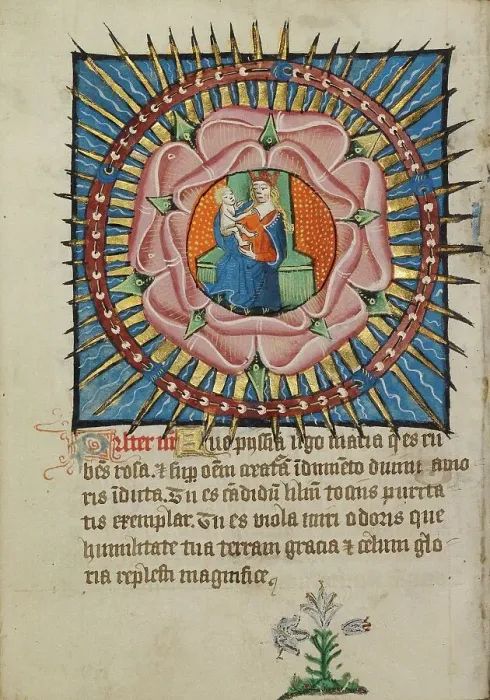 Pater nr̄ Aue pijssīa v̄go maria q̄ es ru
bēs rosa. ⁊ sup̄ oēm creatā īdumēto diuini amo
ris īduta. Tu es cādidū liliū tocius purita
tis exemplar. Tu es viola miri odoris que
humilitate tua terram gracia ⁊ celum glo
ria replesti magnifice